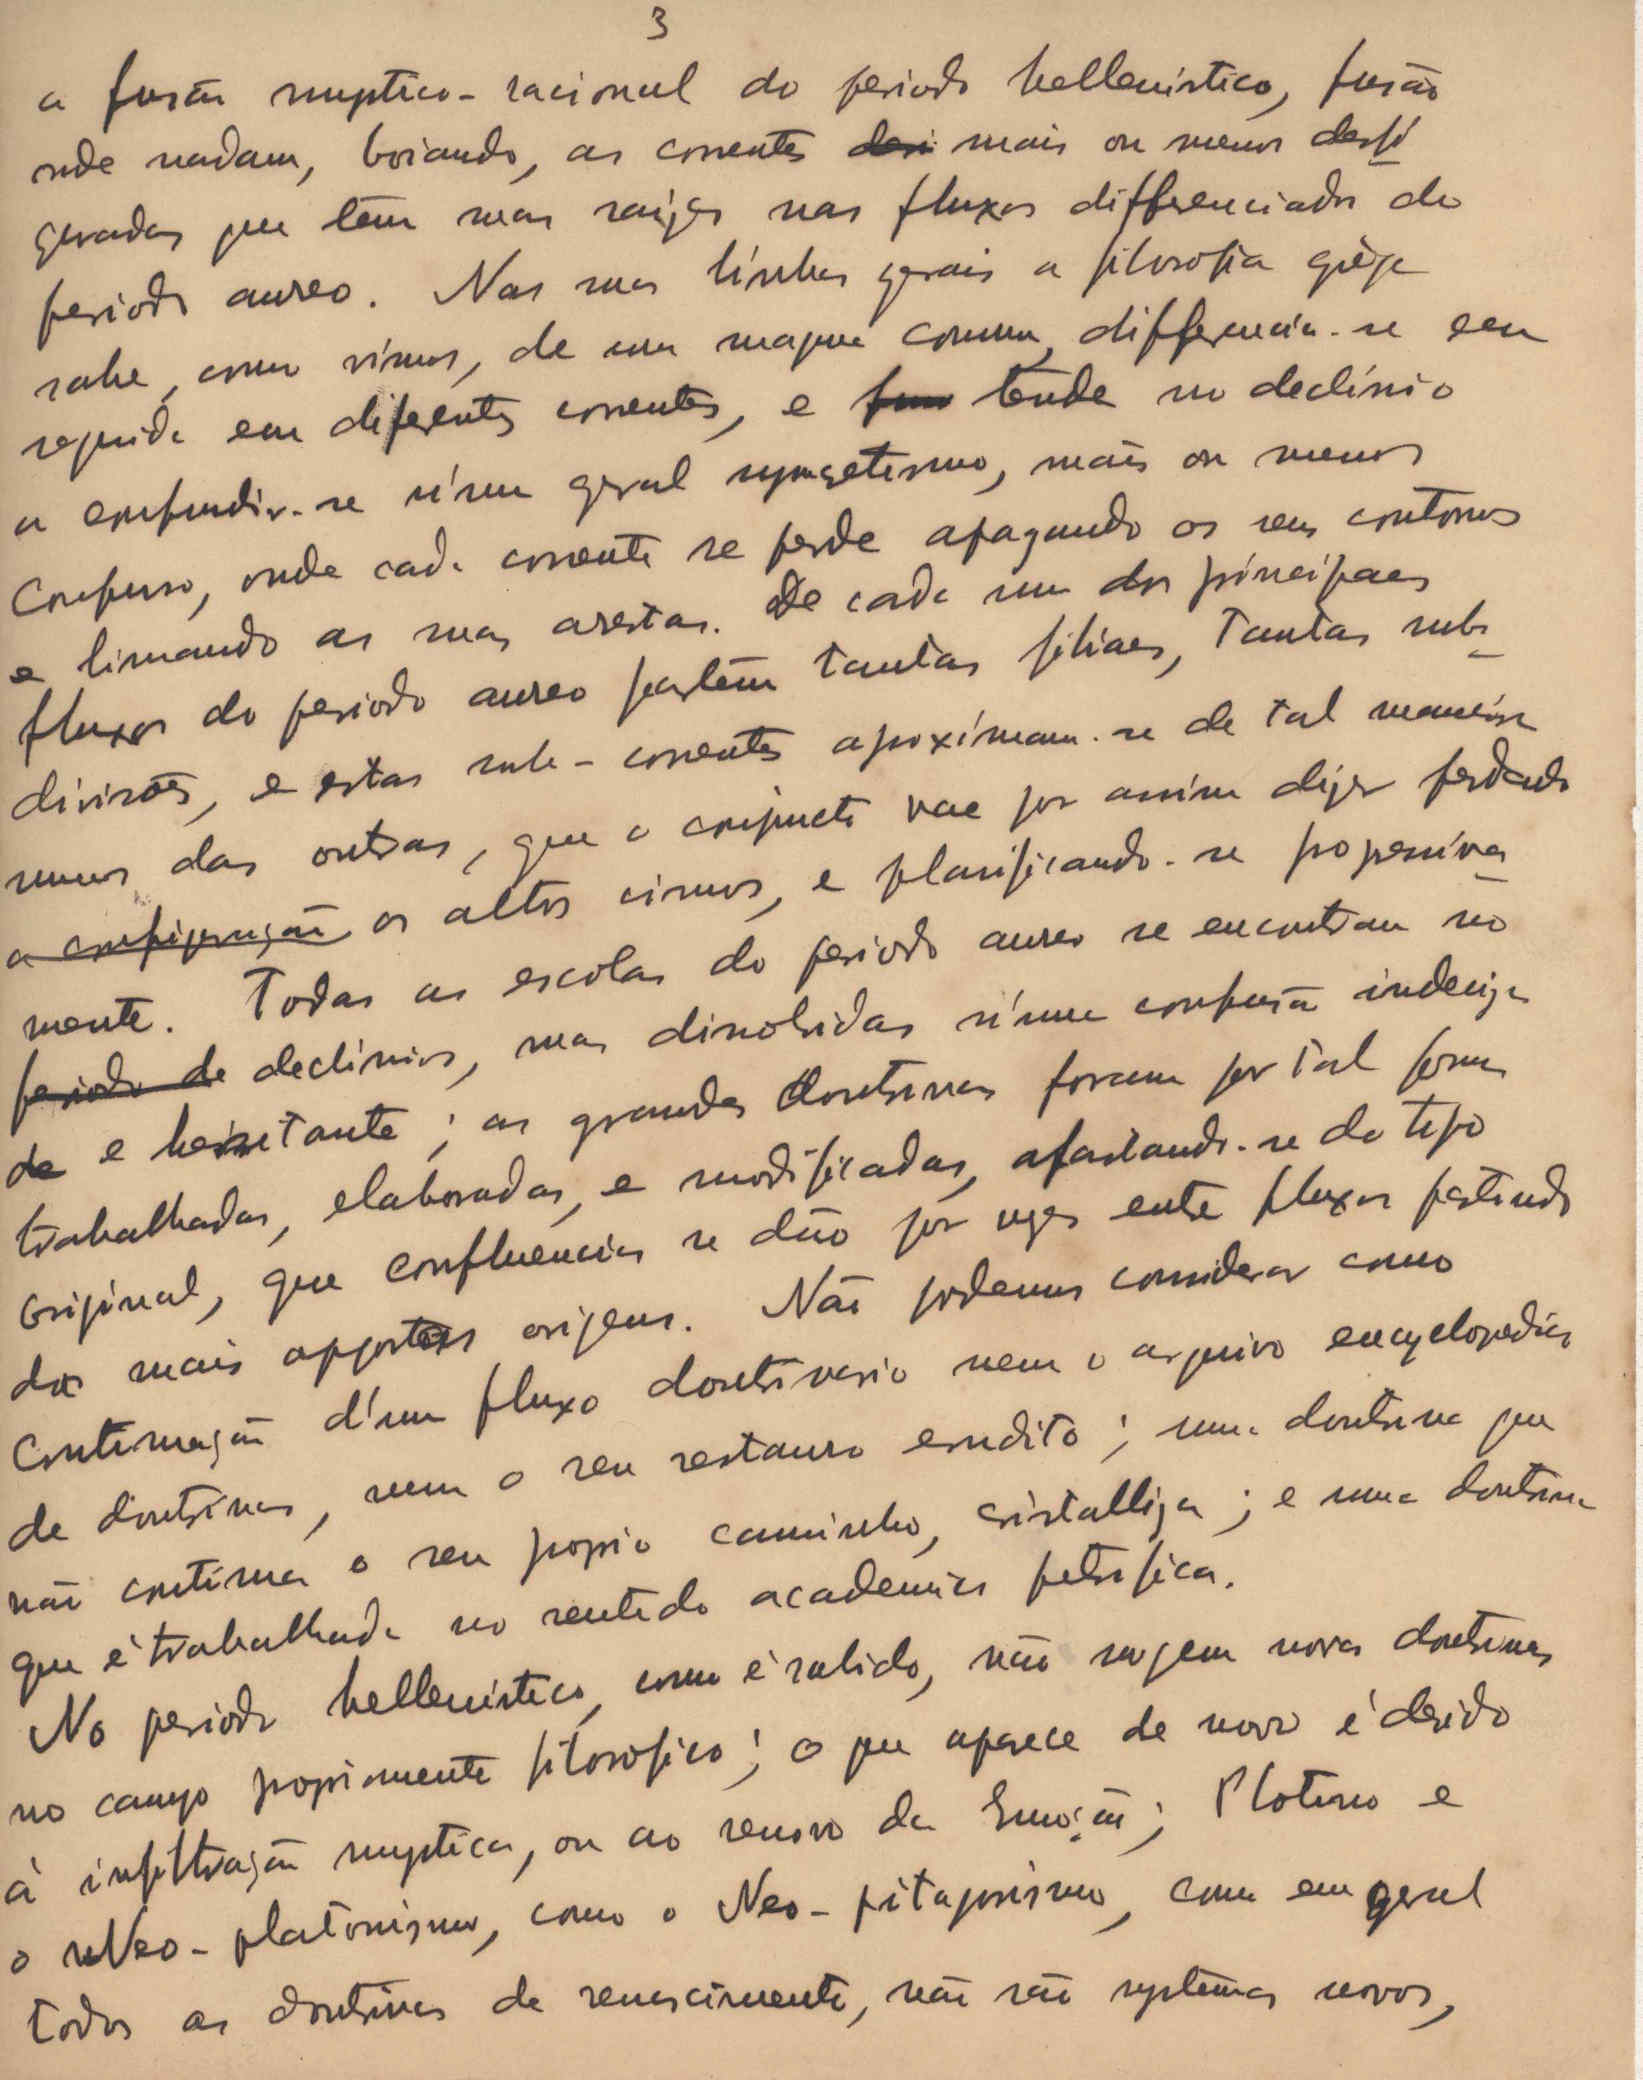 3
a fusão mystico-racional do periodo hellenistico, fusão
onde nadam, boiando, as correntes mais ou menos desfi-
guradas que têm suas raizes nos fluxos differenciados do
periodo aureo. Nas suas linhas gerais a filosofia grega
sahe, como vimos, de um magma commum, differencia-se em
seguida em diferentes correntes, e tende no declinio
a confundir-se n'um geral syncretismo, mais ou menos
confuso, onde cada corrente se perde apagando os seus contornos
e limando as suas arestas. De cada um dos principaes
fluxos do periodo aureo partem tantas filiaes, tantas sub-
divisões, e estas sub-correntes aproximam-se de tal maneira
umas das outras, que o conjuncto vae por assim dizer perdendo
a configuração os altos cimos, e planificando-se progressiva-
mente. Todas as escolas do periodo aureo se encontram no
periodo de declinio, mas dissolvidas n'uma confusão indeciza
de e hesitante; as grandes doutrinas foram por tal forma
trabalhadas, elaboradas, e modificadas, afastando-se do tipo
original, que confluencias se dão por vezes entre fluxos partindo
das mais oppostas origens. Não podemos considerar como
continuação d'um fluxo doutrinario nem o arquivo encyclopedico
de doutrinas, nem o seu restauro erudito; uma doutrina que
não continua o seu proprio caminho, cristalliza; e uma doutrina
que é trabalhada no sentido academico petrifica.
No periodo hellenistico, como é sabido, não surgem novas doutrinas
no campo propriamente filosofico; o que aparece de novo é devido
à infiltração mystica, ou ao renovo da Emoção; Plotino e
o Neo-platonismo, como o Neo-pitagorismo, como em geral
todas as doutrinas de renascimento, não são systemas novos,